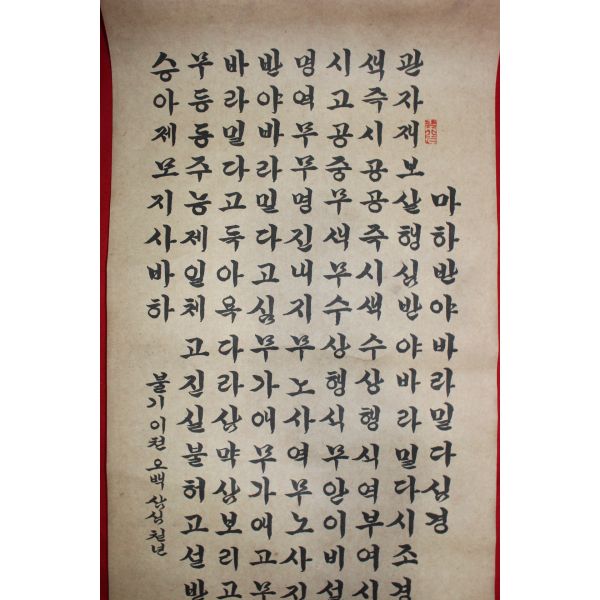 마하반야바라밀다심경
관자재보살행심반야바라밀다시조경
색즉시공공즉시색수상행식역부여시
시고공중무색무수상행식무안이비설
명여무무명진내지무노사역무노사진
반야바라밀다고심무가애무가애고무
바라밀다고득아욕다라삼먁삼보리고
무등등주능제일체고진실불허고설반
승아제모지사바하
불기 이천 오백 삼십 칠년